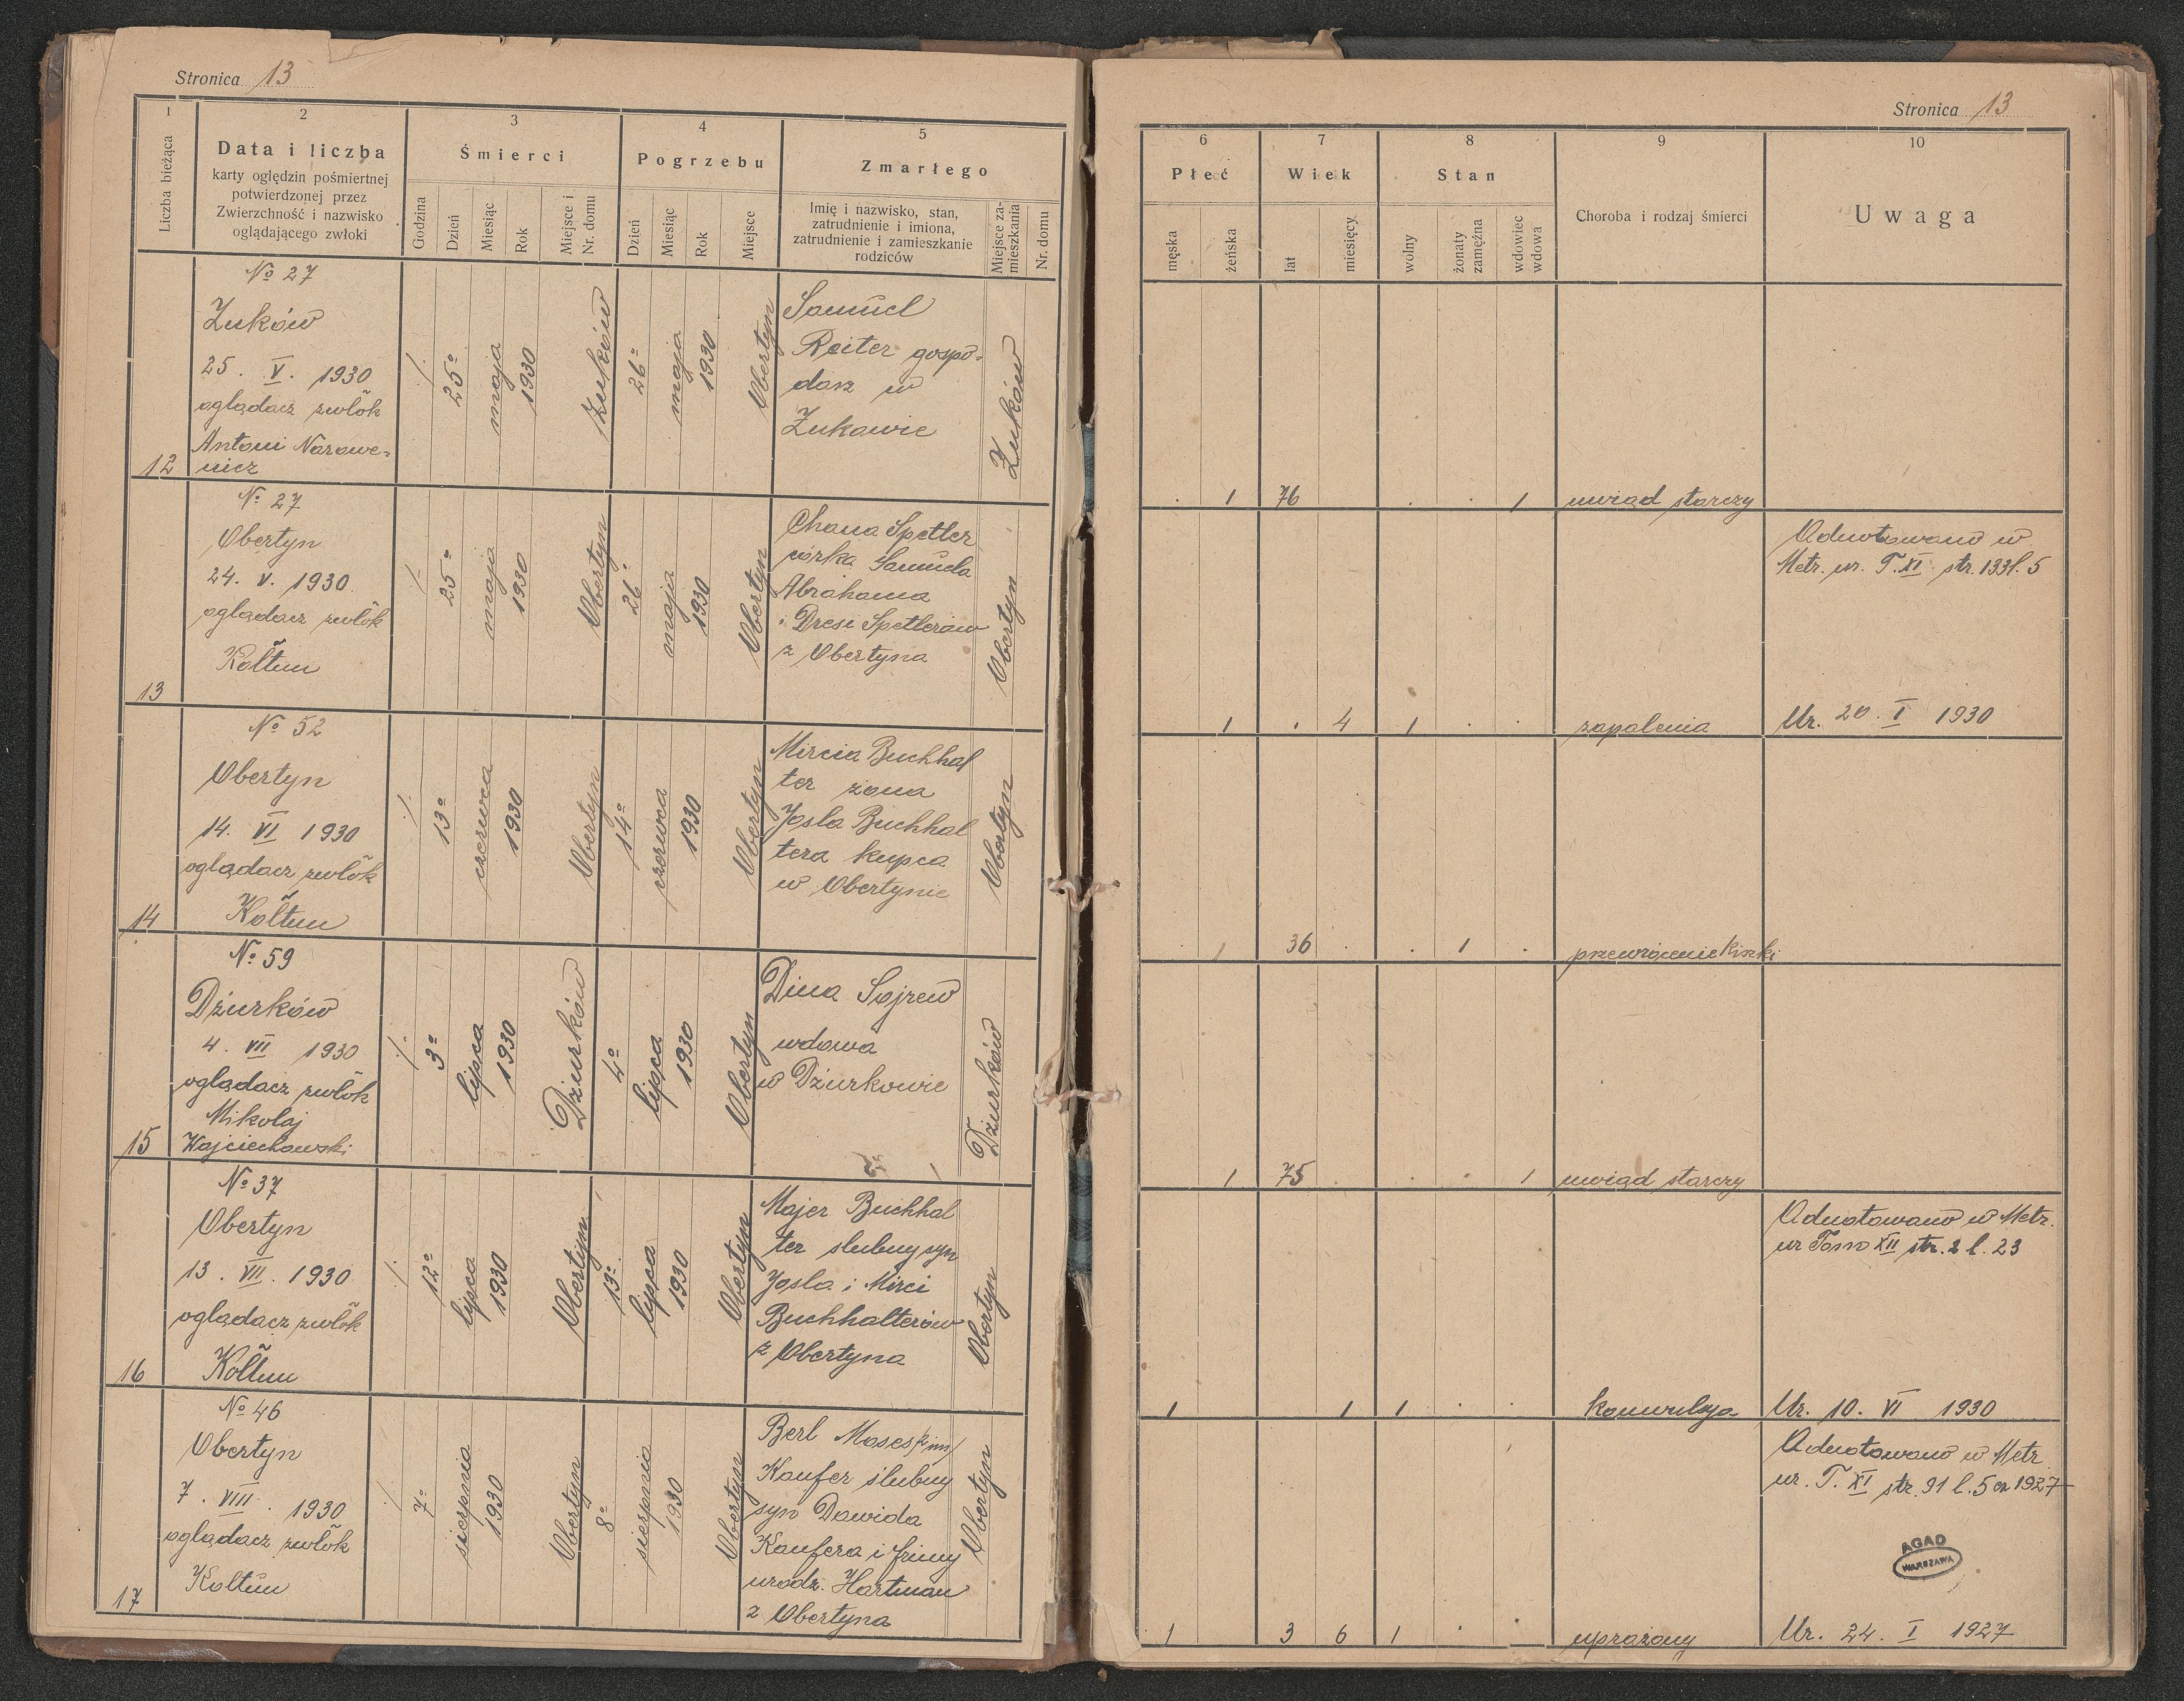 Stronica 13
1
2
3
4
5
Liczba bieżąca
Data i liczba
karty oględzin pośmiertnej
potwierdzonej przez
Zwierzchność i nazwisko
oglądającego zwłoki
Śmierci
Godzina
Dzień
Miesiąc
Rok
Miejsce i
Nr. domu
Pogrzebu
Dzień
Miesiąc
Rok
Miejsce
Zmarłego
Imię i nazwisko, stan,
zatrudnienie i imiona,
zatrudnienie i zamieszkanie
rodziców
Miejsce za-
mieszkania
Nr. domu
12
No 27
Żuków
25. V. 1930
oglądacz zwłok
Antoni Narowe=
wicz
25o
maja
1930
Żuków
26o
maja
1930
Obertyn
Samuel
Reiter gospo-
darz w
Żukowie
Żuków
13
No 27
Obertyn
24. V. 1930
oglądacz zwłok
Kołtun
25o
maja
1930
Obertyn
26o
maja
1930
Obertyn
Chana Spetler
córka Samuela
Abrahama
i Dresi Spetlerów
z Obertyna
Obertyn
14
No 52
Obertyn
14. VI 1930
oglądacz zwłok
Kołtun
13o
czerwca
1930
Obertyn
14o
czerwca
1930
Obertyn
Mircia Buchhal
ter żona
Josla Buchhal
tera kupca
w Obertynie
Obertyn
15
No 59
Dżurków
4. VII 1930
oglądacz zwłok
Mikolaj
Wojciechowski
3o
lipca
1930
Dżurków
4o
lipca
1930
Obertyn
Dina
wdowa
w Dżurkowie
Dżurków
16
No 37
Obertyn
13. VII. 1930
oglądacz zwłok
Kołtun
12o
lipca
1930
Obertyn
13o
lipca
1930
Obertyn
Majer Buchhal
ter slubny syn
Josla i Mirci
Buchhalterów
z Obertyna
Obertyn
17
No 46
Obertyn
7. VIII. 1930
oglądacz zwłok
Koltun
7o
sierpnia
1930
Obertyn
8o
sierpnia
1930
Obertyn
Berl Moses
Kaufer ślubny
syn Dawida
Kaufera i Frimy
urodz. Hartman
z Obertyna
Obertyn
Stronica 13
6
7
8
9
10
Płeć
męska
żeńska
Wiek
lat
miesięcy
Stan
wolny
żonaty
zamężna
wdowiec
wdowa
Choroba i rodzaj śmierci
Uwaga
. 1 76 . . 1 uwiąd starczy
Adnotowano w
Metr. ur. T. XI. str. 133 l. 5
1 . 4 1 . . zapalenia Ur. 20. I 1930
. 1 36 . . 1 . przewrócenie kiszki
1 75 . . . 1 uwiąd starczy
Adnotowano w Metr.
ur Tom XII str. 2 l. 23
1 1 1 . . konwulsja Ur. 10. VI 1930
Adnotowano w Metr
ur. T. XI str. 91 l. 5 ex 1927
AGAD
WARSZAWA
1 3 6 1 . . Ur. 24. I 1927